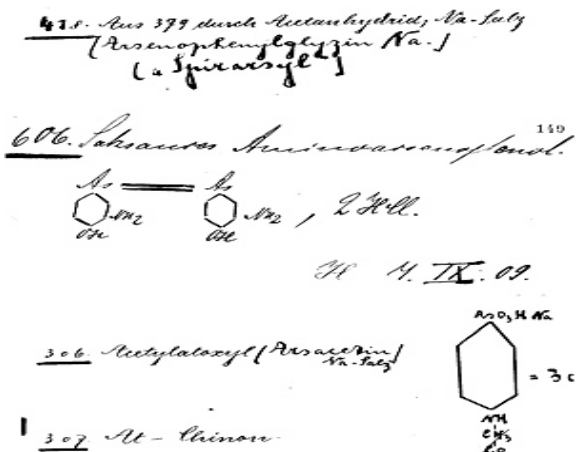 418. Aus 379 durch Acetanhydrid; Na-Salz
[Arsenophenylglyzin Na.]
["Spirarsyl"]
149
606. Salzsaures Aminoarsenophenol.
As As
NH2 NH2, 2 HCl.
OH OH
H 4. IX. 09.
AsO3H Na
306. Acetylatoxyl [Arsacetin]
Na-Salz
= 30
NH
307. At-Chinon